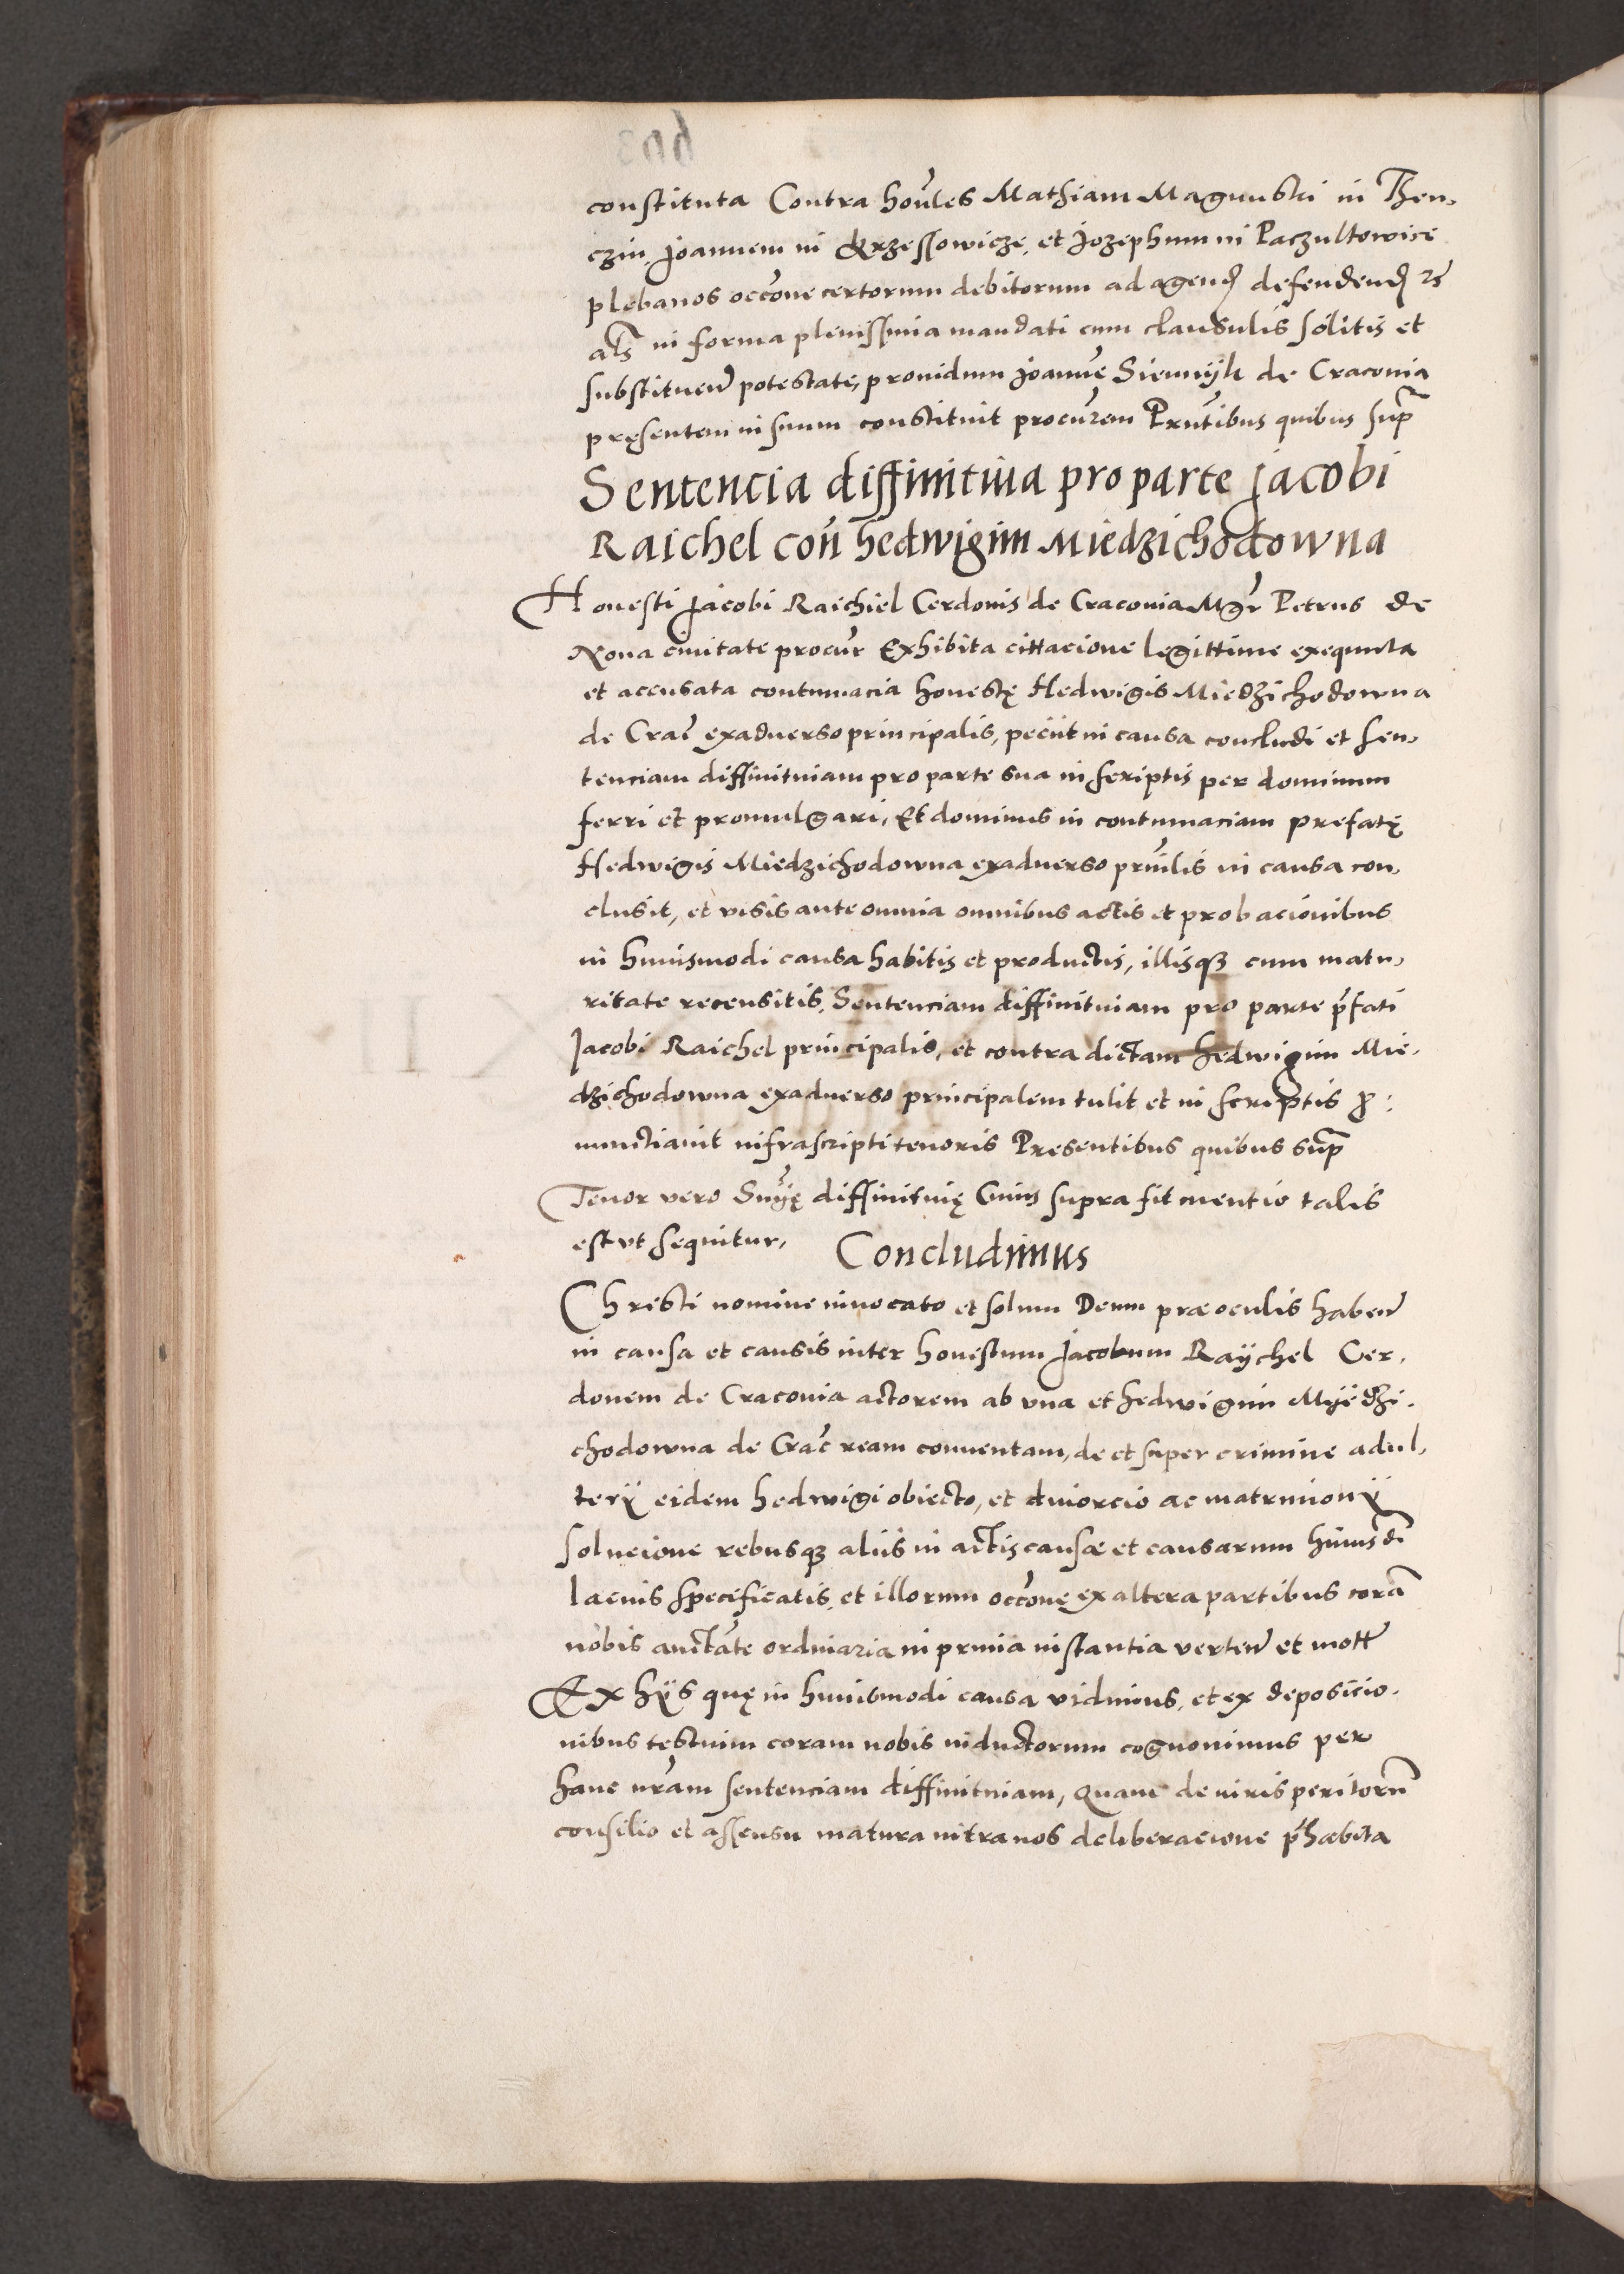 constituta Contra hon̄les Mathiam Magnuski in Then,
czin, Joannem in Krzessowicze, et Jozephum in Paczultowice
plebanos occōne certorum debitorum ad agend̄ defendend̄ &c̄
al̄s in forma plenissima mandati cum clausulis solitis et
substituen̄ potestate, prouidum Joannē Siennijk de Craconia
pręsentem in suum constituit procur̄em Prn̄tibus quibus sup̄
Sentencia diffinitiua pro parte Jacobi
Raichel con̄ hedwigim Miedzichodowna
Honesti Jacobi Raichiel Cerdonis de Craconia Mgr̄ Petrus de
Noua ciuitate procur̄ Exhibita cittacione legittime exequuta
et accusata contumacia honestę Hedwigis Miedzichodowna
de Crac̄ exaduerso principalis, peciit in causa concludi et sen,
tenciam diffinitiuam pro parte sua in scriptis per dominum
ferri et promulgari, Et dominus in contumaciam prefatę
Hedwigis Miedzichodowna exaduerso prin̄lis in causa con,
clusit, et visis ante omnia omnibus actis et probacionibus
in huiusmodi causa habitis et productis, illisqz cum matu,
ritate recensitis, Sentenciam diffinitiuam pro parte p̄fati
Jacobi Raichel principalis, et contra dictam hedwigim Mie,
dzichodowna exaduerso principalem tulit et in scriptis ꝓ:
nunctiauit infrascripti tenoris Presentibus quibus sup̄
Tenor vero Sn̄ię diffinitiuę Cuius supra fit mentio talis
est vt sequitur,
Concludimus
Christi nomine inuocato et solum Deum præ oculis haben̄
in causa et causis inter honestum Jacobum Raijchel Cer,
donem de Craconia actorem ab vna et hedwigim Mijedzi,
chodowna de Crac̄ ream conuentam, de et super crimine adul,
terij eidem hedwigi obiecto, et diuorcio ac matrimonij
solucione rebusqz aliis in actis causæ et causarum huiusdī
lacius specificatis, et illorum occōne ex altera partibus corā
nobis auctāte ordinaria in prima instantia verten̄ et mott̄
Ex hijs quę in huiusmodi causa vidimus, et ex deposicio,
nibus testium coram nobis inductorum cognouimus per
hanc nr̄am sentenciam diffinitiuam, Quam de iuris peritorū
consilio et assensu matura intra nos deliberacione p̄habita